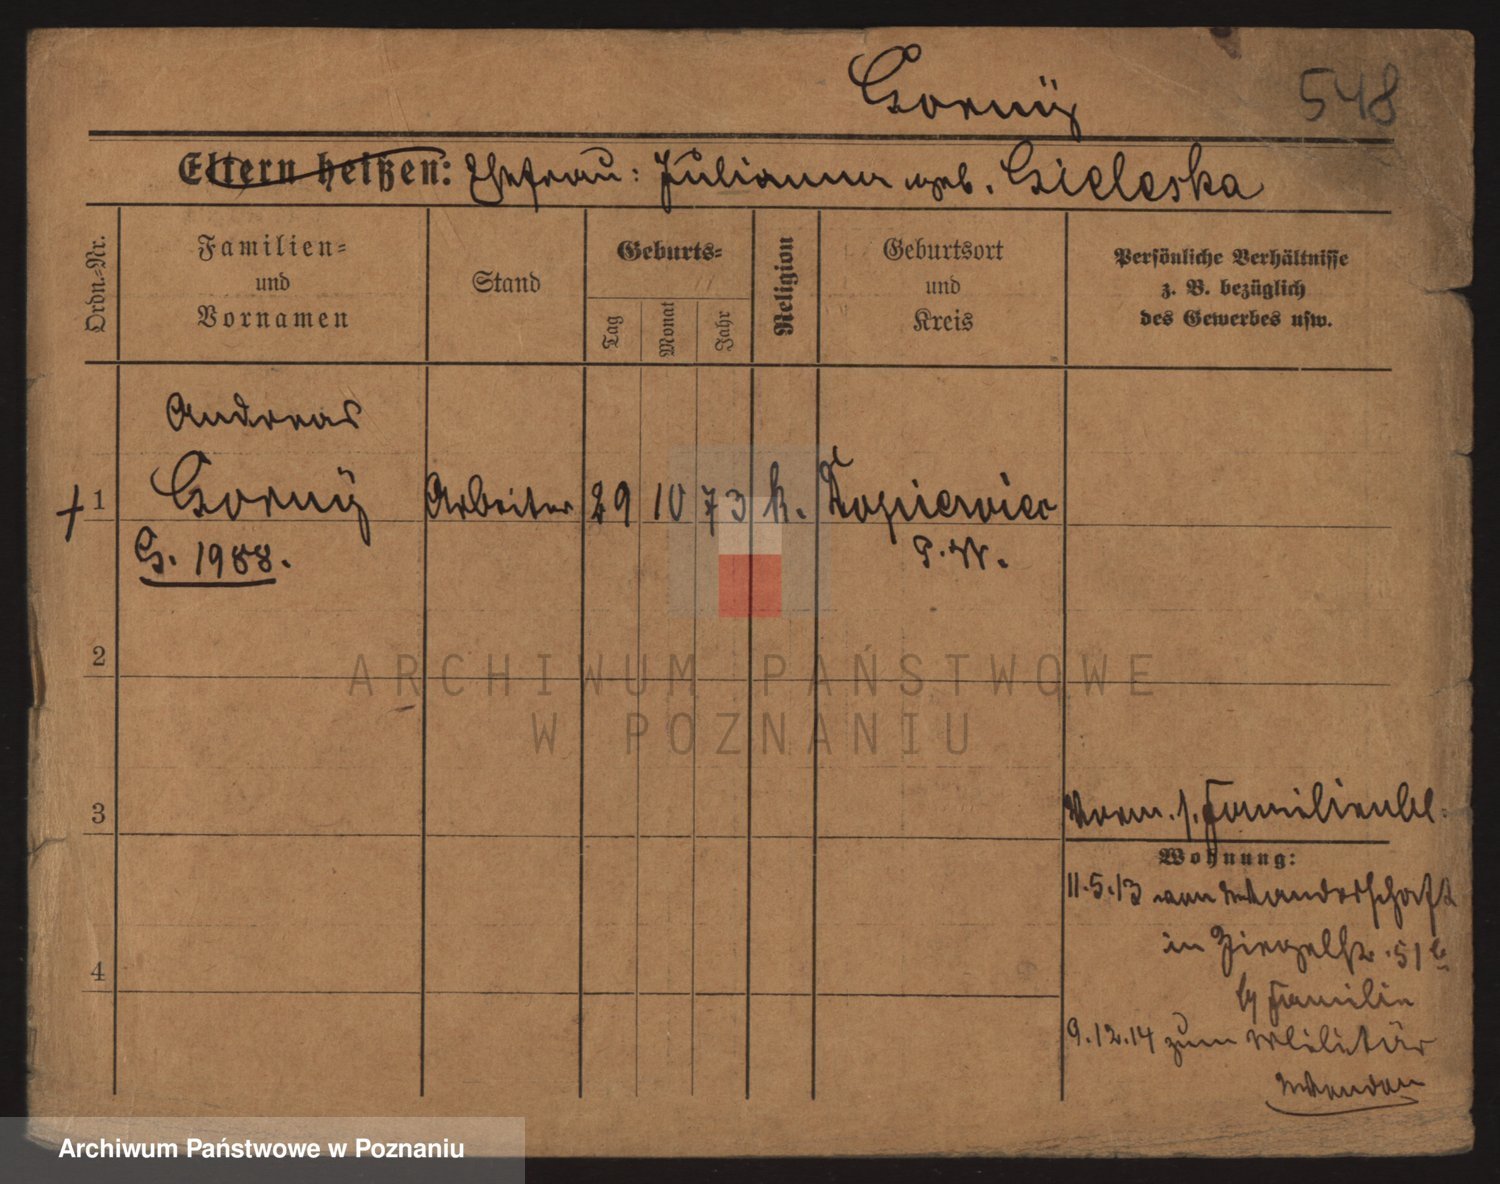 Gorny
548
Eltern heißen: Ehefrau: Julianna geb. Gieleska
Ordn.=Nr.
Familien=
und
Vornamen
Stand
Geburts=
Tag
Monat
Jahr
Religion
Geburtsort
und
Kreis
Persönliche Verhältnisse
z. B. bezüglich
des Gewerbes usw.
Andreas
1 Gorny Arbeiter 29 10 73 k. Kopiewiec
G. 1988.
P.W.
2
ARCHIWUM PAŃSTWOWE
W POZNANIU
3
Vorm. s. Familienbl.
Wohnung:
11.5.13 von Wanderschaft
in Ziegelstr. 51 b
4
by Familie
9.12.14 zum Militär
Archiwum Państwowe w Poznaniu